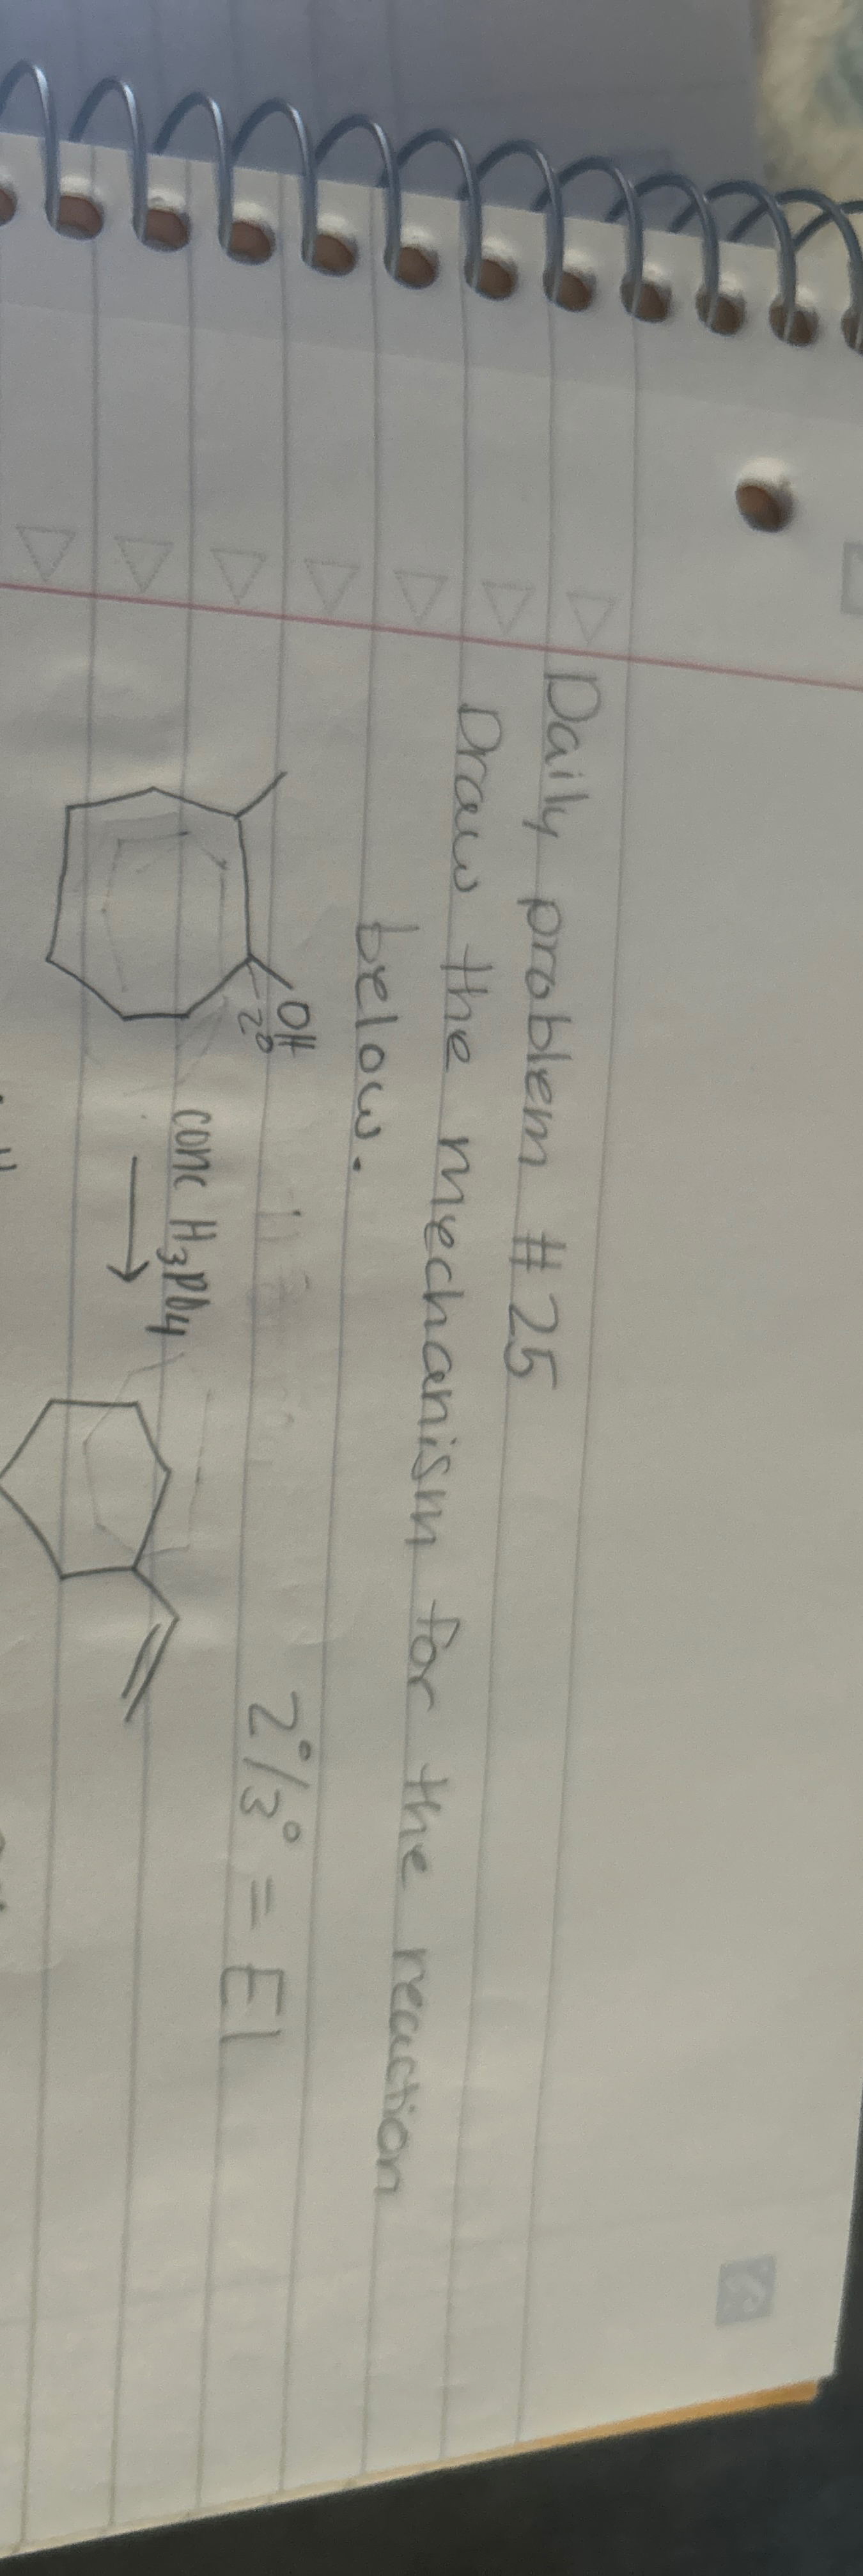 Daily problem #25
Draw the mechanism for the reaction
below.
OH
2°
2°/3° = E1
conc H3PO4